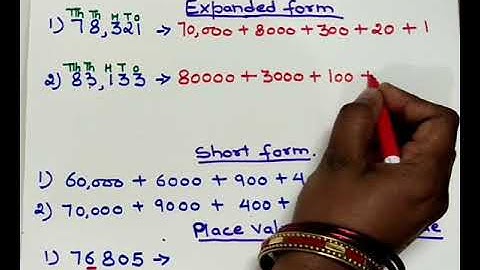 Expanded form
TTh Th H T O
1) 78,321 → 70,000 + 8000 + 300 + 20 + 1
TTh Th H T O
2) 83,133 → 80000 + 3000 + 100 +
Short form.
1) 60,000 + 6000 + 900 + 4
2) 70,000 + 9000 + 400 +
Place
1) 76805 →